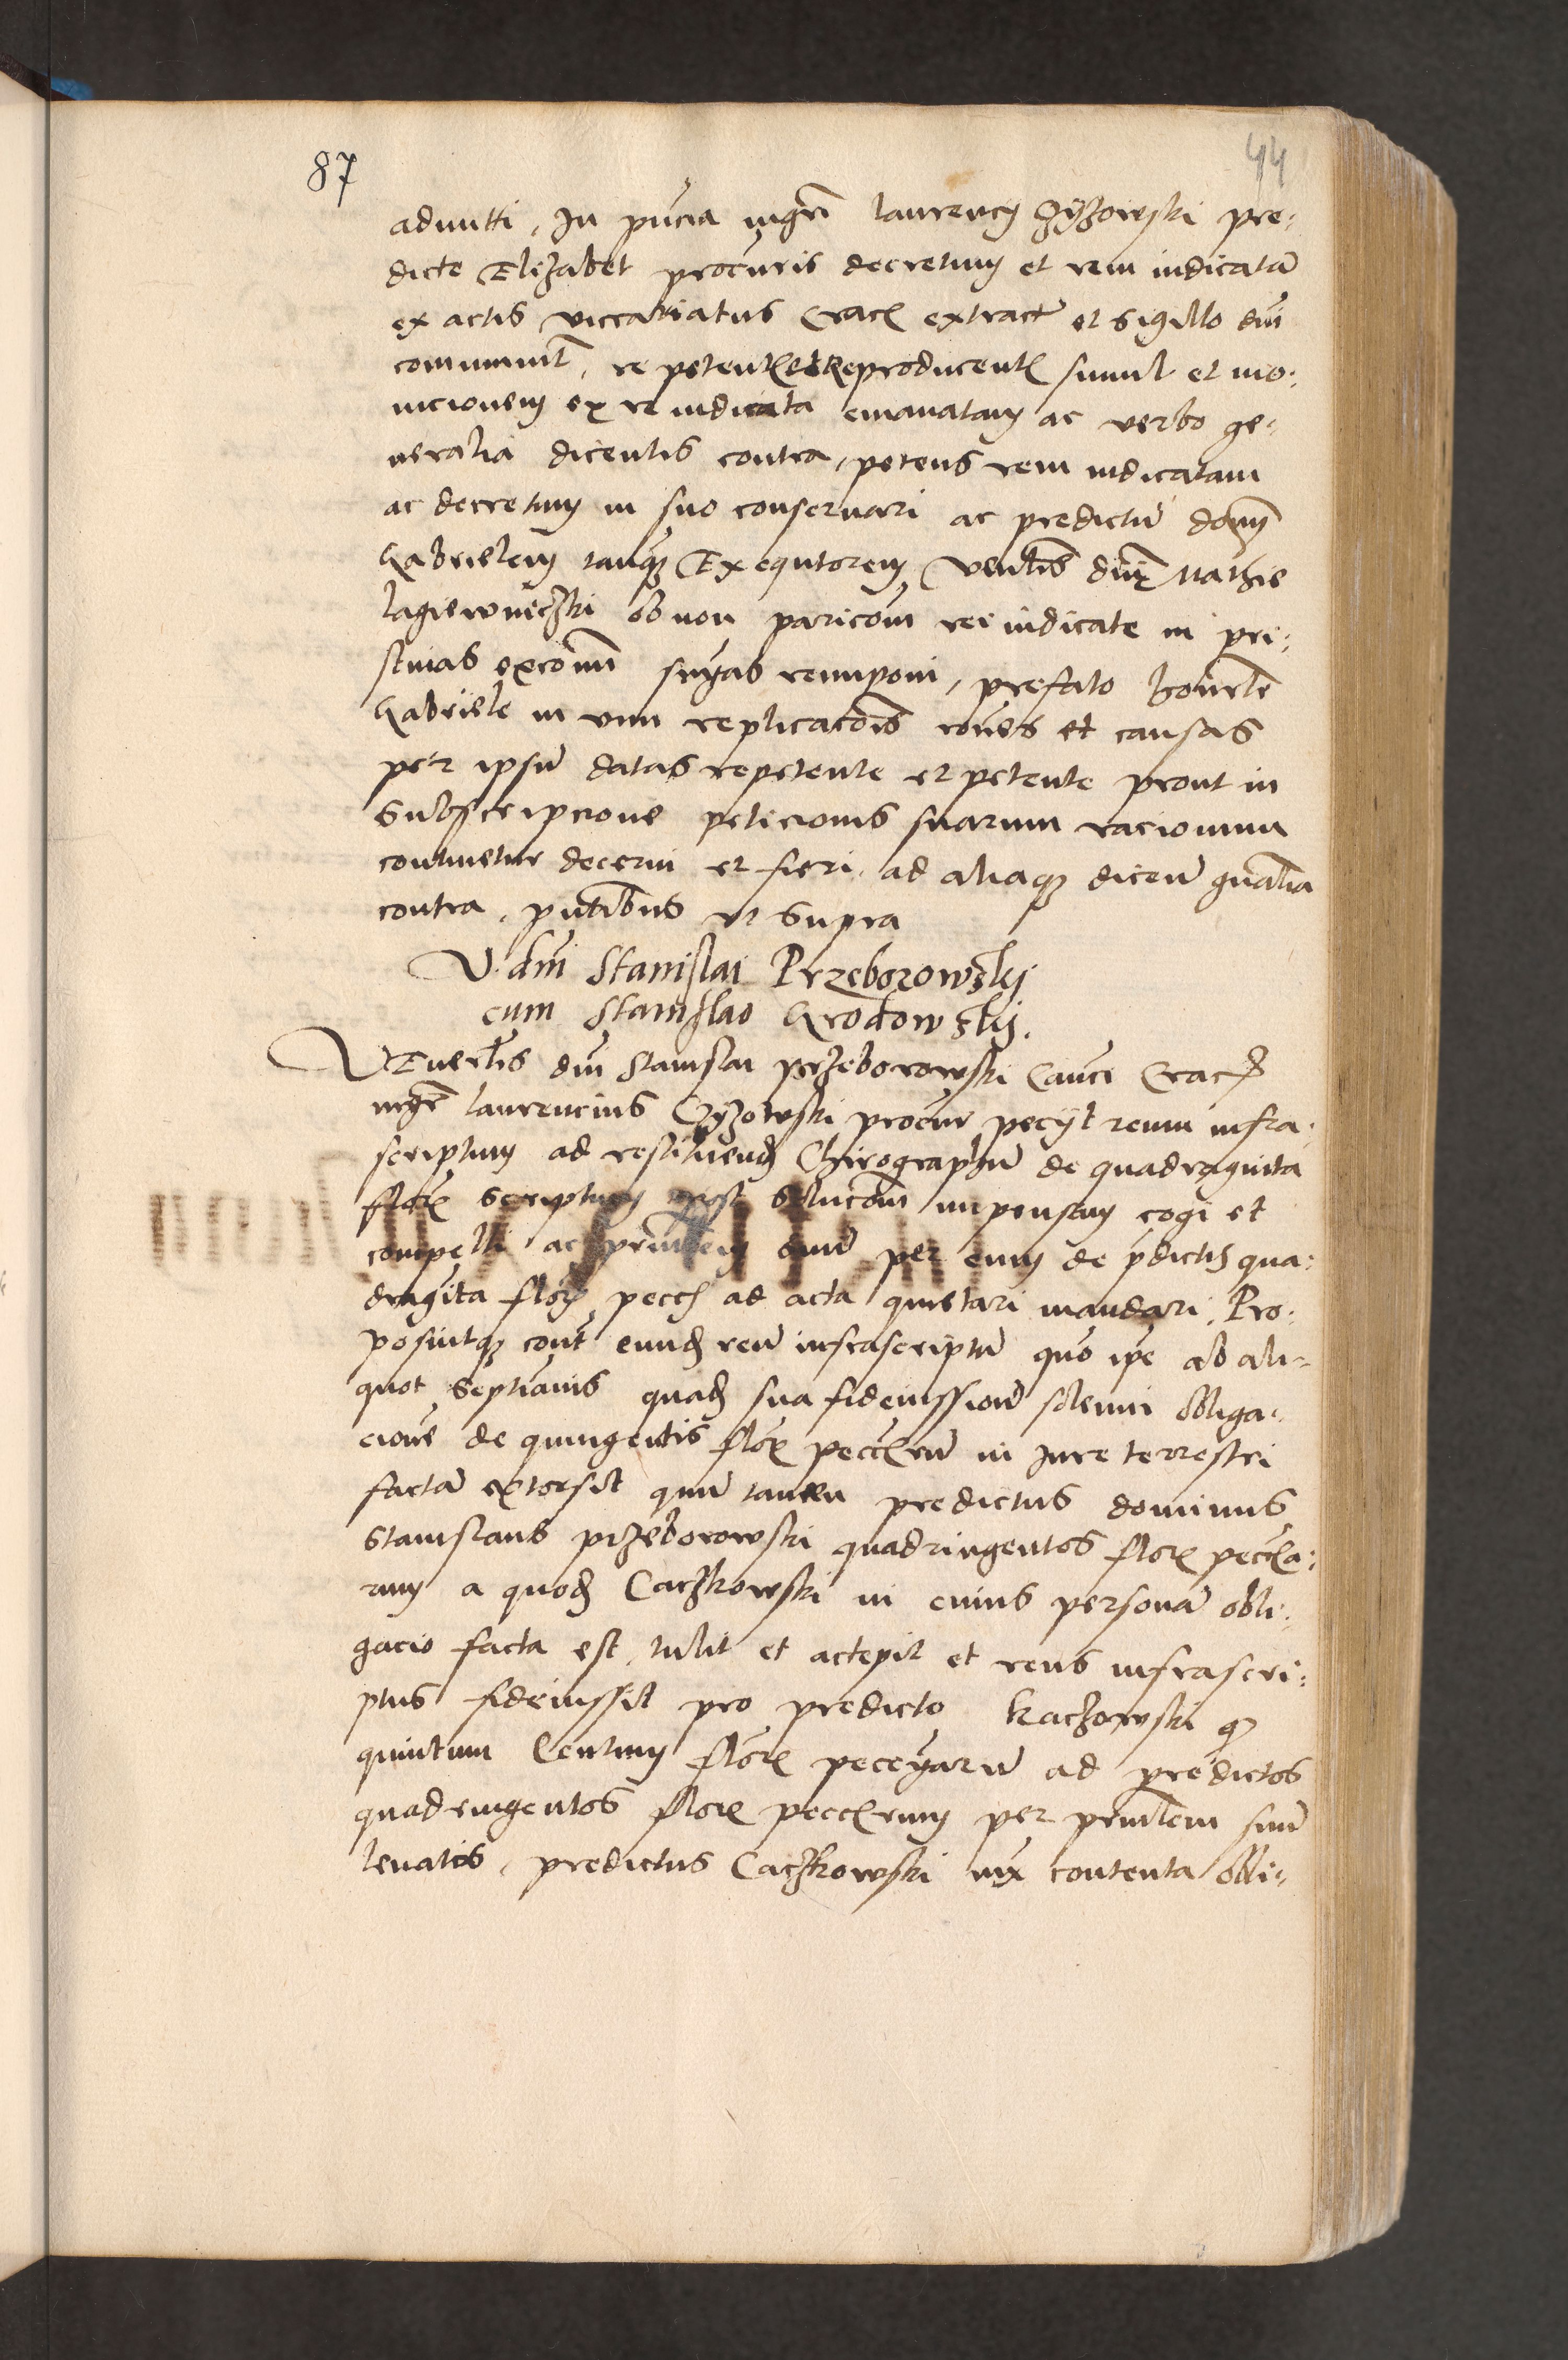 87
44
admitti, In pñcia mgri laurencij Czyzowski pre-
dicte Elizabet procuris decretum et rem iudicatã
ex actis vicariatus Crac extract et sigillo dni
communit, repetent et Reproducent simul et mo-
nicionem ex re iudicata emanatam ac verbo ge-
neralia dicentis contra, petens rem iudicatam
ac decretum in suo conseruari ac predictũ domĩ
Gabrielem tanq Exequtorem Venlis dni Mathie
lagiewniczki ob non paricõm rei iudicate in pri-
stinas excõm snias reimponi, prefato honrle
Gabriele in vim replicacõis rões et causas
per ipsũ datas repetente et petente prout in
subscripcione peticionis suarum racionum
continetur decerni et fieri, ad aliaq dicen gnãlia
contra, pñtibus vt supra
V. dni Stanislai Przeborowskj
cum Stanislao Grodowskj.
VEnerlis dni Stanislai przeborowski Canci Crac
mgr laurencius Czyzowski procur pecijt reum infra-
scriptum ad restituend Chirographũ de quadraginta
flor scriptum post solucõm impensam cogi et
compelli ac prinlem suũ per eum de pdictis qua-
draginta flor pecc ad acta quietari mandari. Pro-
posuitq cont eund reũ infrascriptũ quo ipe ab ali-
quot septianis quad sua fideiussiom solemni obliga-
cione de quingentis flor pecccrũ in Jure terrestri
factã extorsit quũ tamen predictus dominus
Stanislaus przeborowski quadringentos flor peccca-
rum a quod Caczkowski in cuius personã obli-
gacio facta est, tulit et accepit et reus infrascri-
ptus fideiussit pro predicto Kaczowski q
quintum Centum flor pecciarũ ad predictos
quadringentos flor pecccrum per prinlem suũ
leuatos, predictus Caczkowski vix contenta obli-